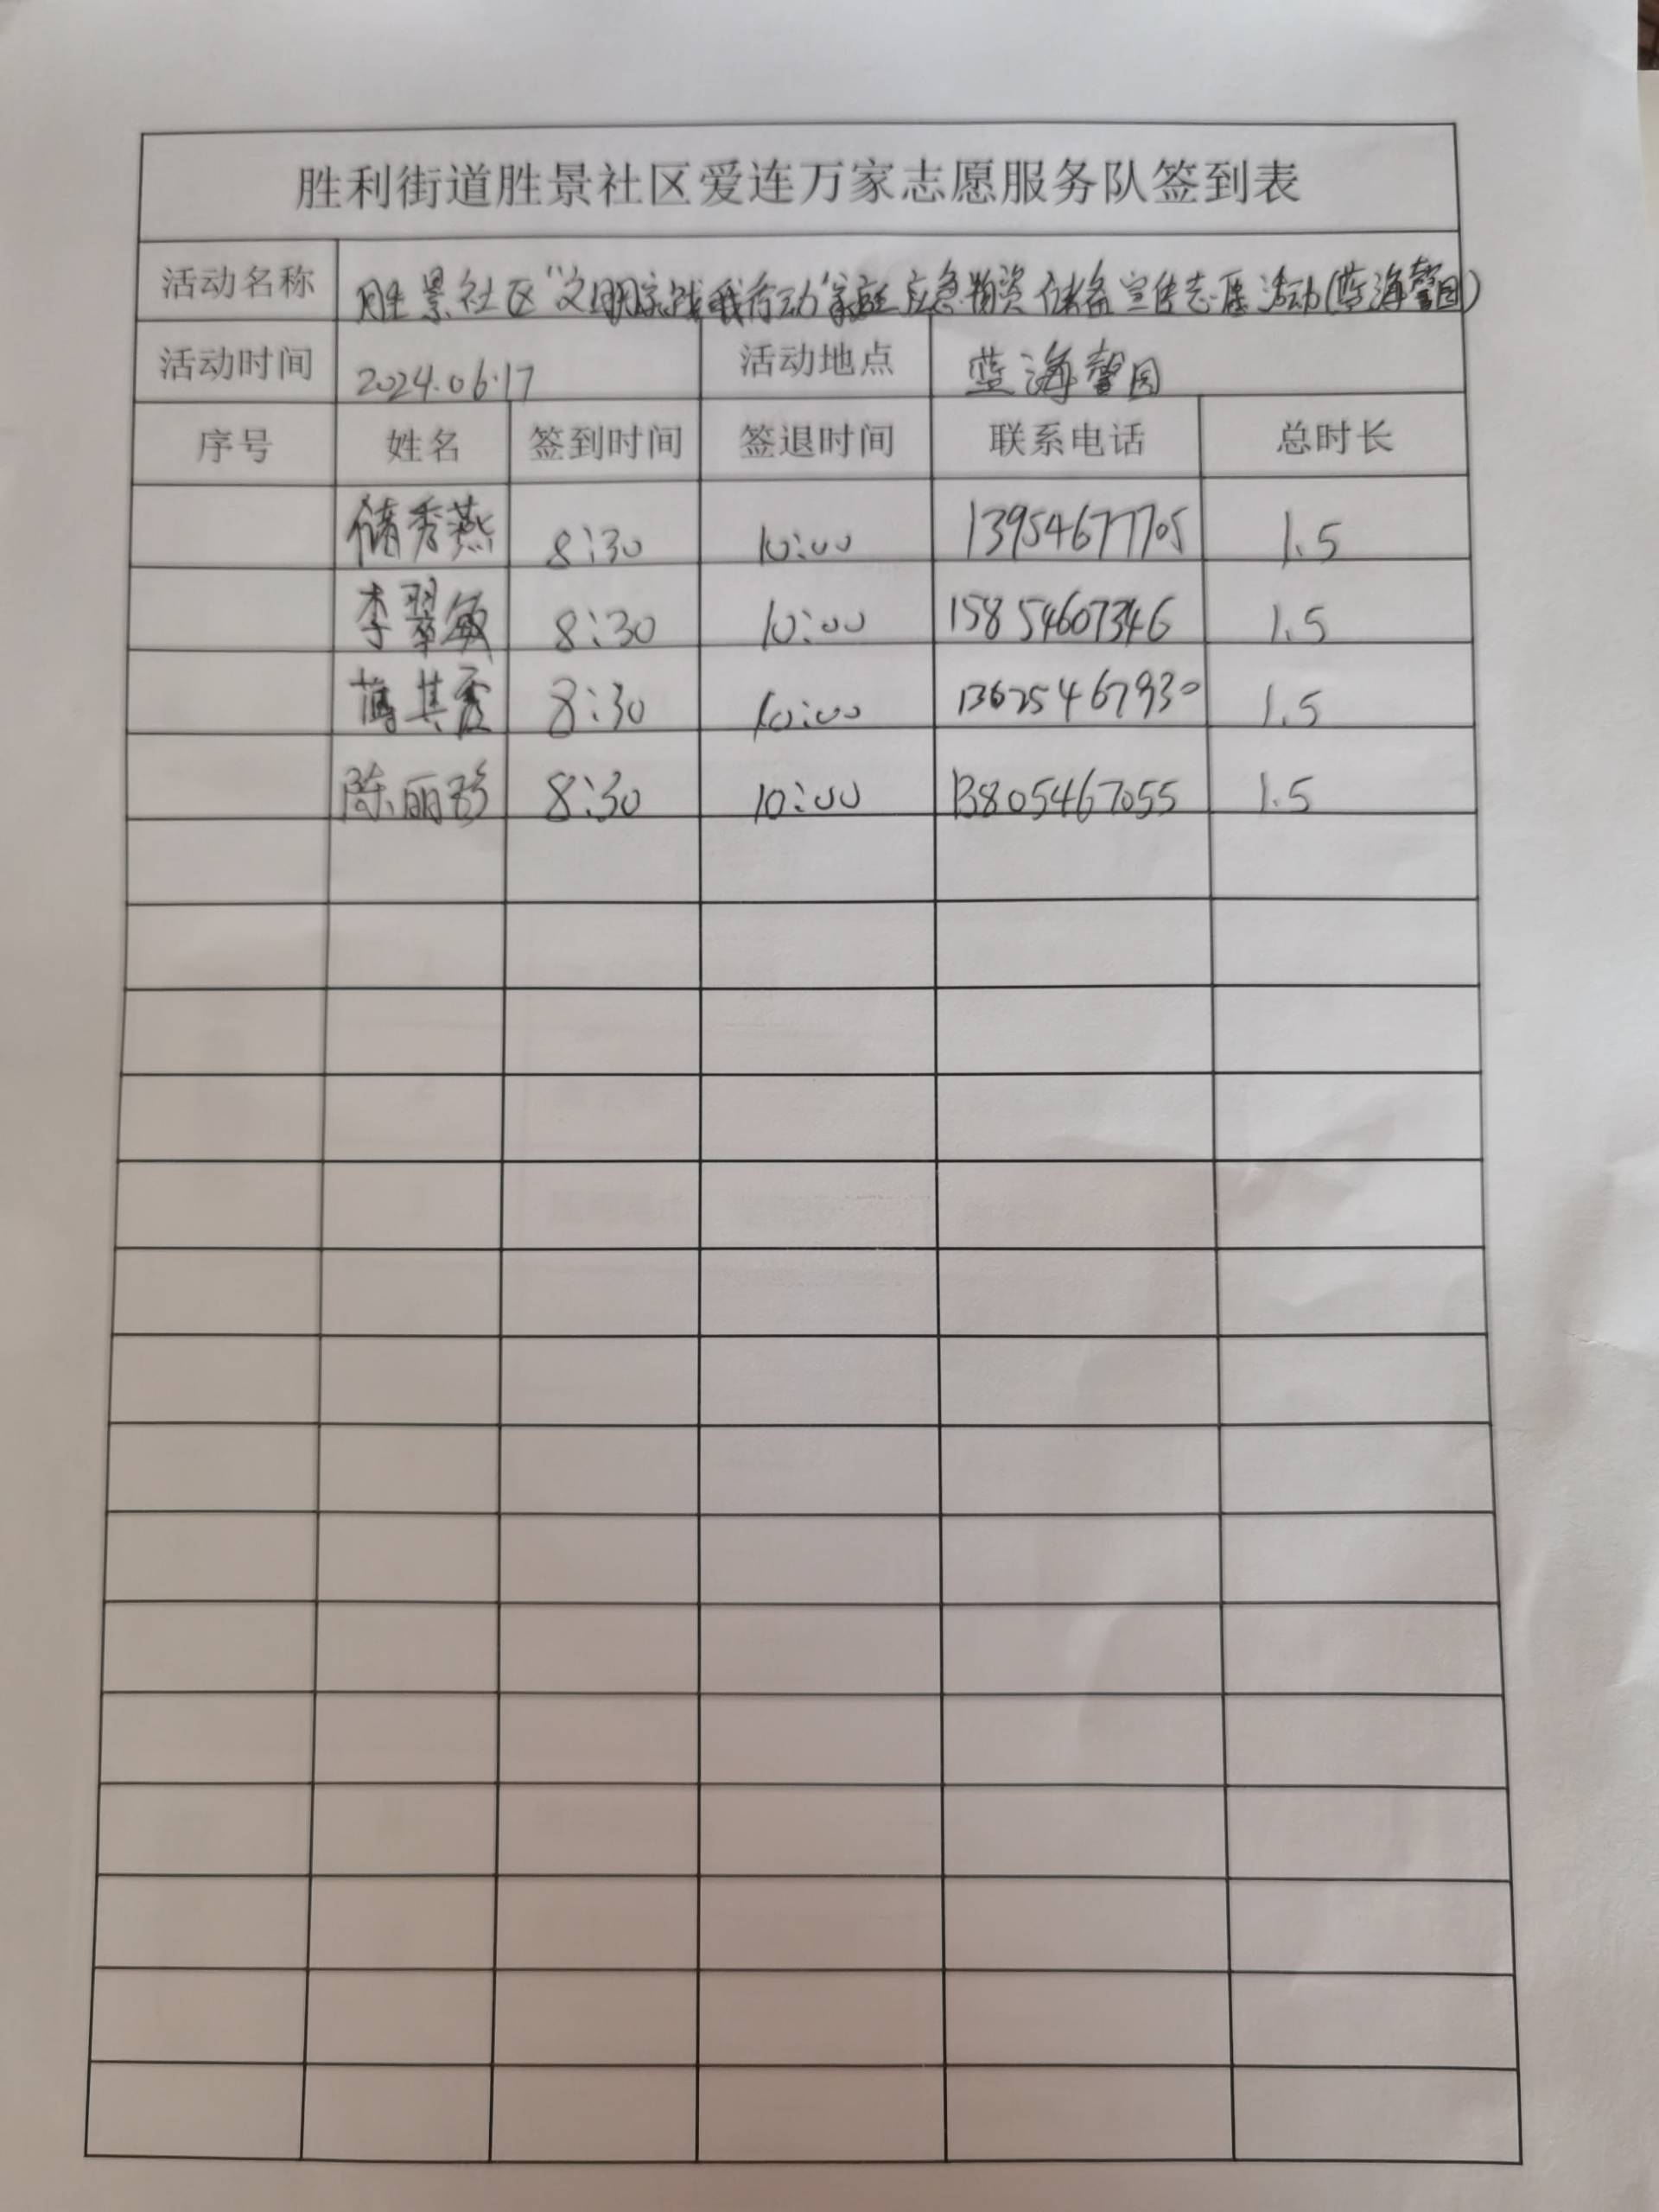 胜利街道胜景社区爱连万家志愿服务队签到表
活动名称 胜景社区"文明实践我行动"家庭应急物资储备宣传志愿活动(蓝海馨园)
活动时间 2024.06.17 活动地点 蓝海馨园
序号 姓名 签到时间 签退时间 联系电话 总时长
储秀燕 8:30 10:00 13954677705 1.5
李翠敏 8:30 10:00 15854607346 1.5
其霞 8:30 10:00 13625467930 1.5
陈丽珍 8:30 10:00 13805467055 1.5